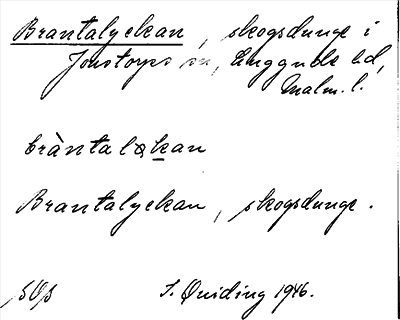 Brantalyckan, skogsdunge i
Jonstorps sn, Luggude hd,
Malm. l.
bràntalykan
Brantalyckan, skogsdunge.
S. Quiding 1946.